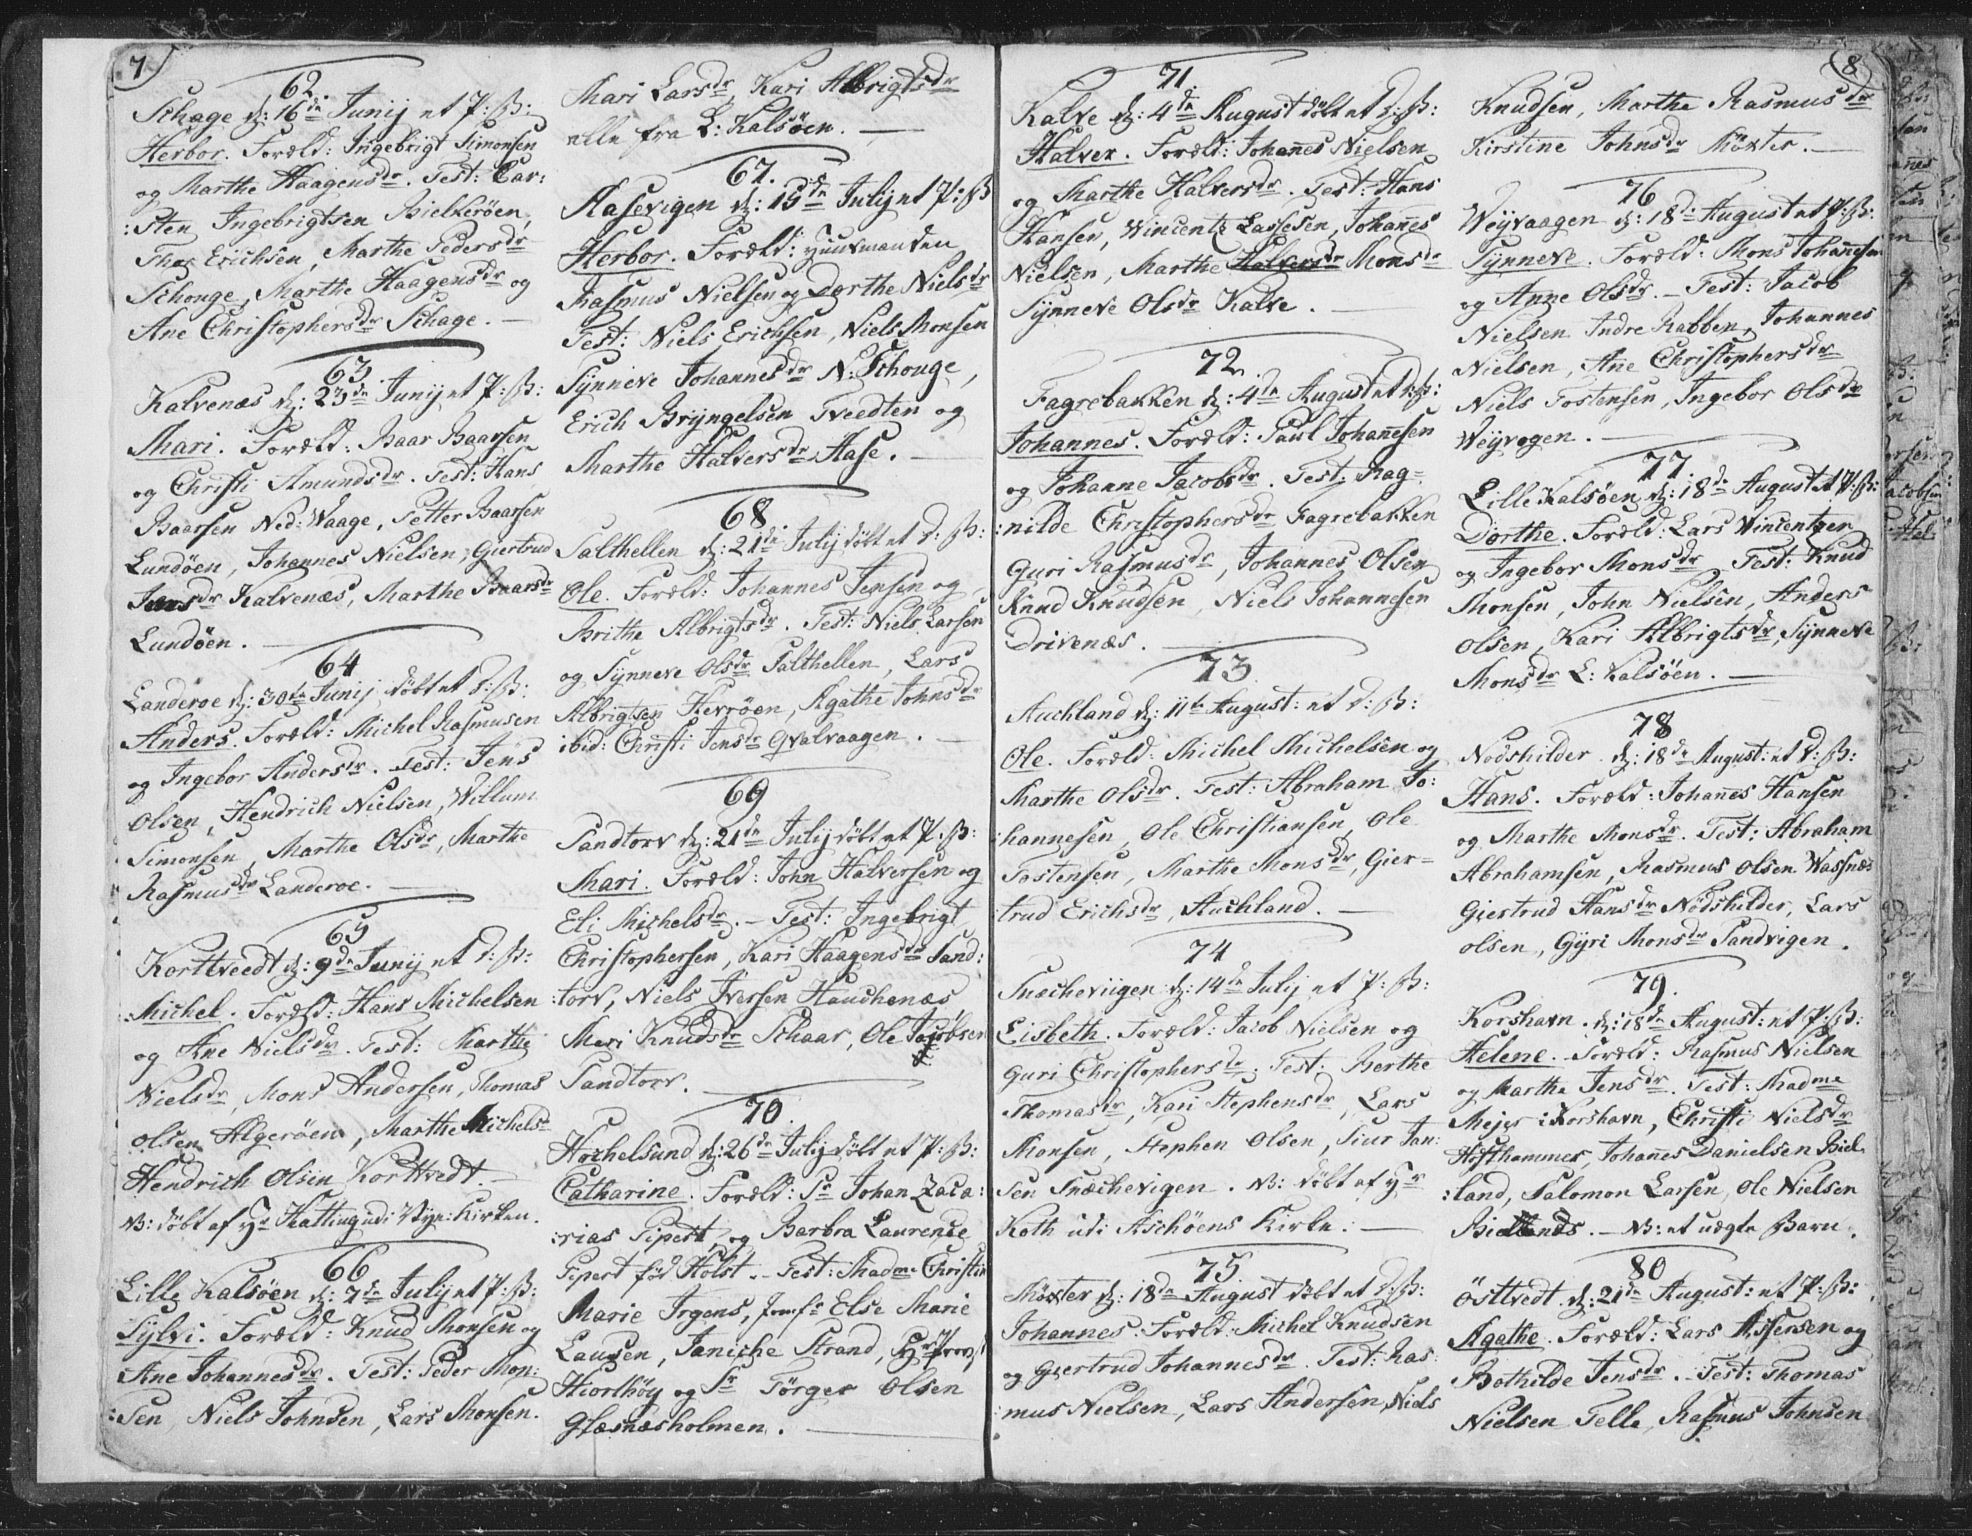 7
62
Schage d: 16de Junij et P: B:
Herbor. Foræld: Ingebrigt Simonsen
og Marthe Haagensdr. Test: Car:
:sten Ingebrigtsen Bielkerøen,
Thor Erichsen, Marthe Pedersdr
Schouge, Marthe Haagensdr og
Ane Christophersdr Schage. —
63
Kalvenæs d: 23de Junij et P: B:
Mari. Foræld: Baar Baarsen
og Christi Amundsdr. Test: Hans
Baarsen Ned: Waage, Petter Baarsen
Lundøen, Johannes Nielsen, Giertrud
Jensdr Kalvenæs, Marthe Baarsdr
Lundøen. —
64
Landeroe d: 30te Junij, døbt et d: B:
Anders. Foræld: Michel Rasmusen
og Ingebor Andersdr. Test: Jens
Olsen, Hendrich Nielsen, Willum
Simonsen, Marthe Olsdr, Marthe
Rasmusdr Landeroe. —
65
Korttveedt d: 9de Junij et d: B:
Michel. Foræld: Hans Michelsen
og Ane Nielsdr. Test: Marthe
Nielsdr, Mons Andersen, Thomas
Olsen Algerøen, Marthe Michelsdr
Hendrich Olsen Korttvedt. —
NB: døbt af Hr Hatting udi Bye: Kirken.
66
Lille Kalsøen d: 7de Julij et P: B:
Sylvi. Foræld: Knud Monsen og
Ane Johannesdr. Test: Peder Mon:
:sen Niels Johnsen, Lars Monsen.
Mari Larsdr, Kari Albrigtsdr
alle fra L: Kalsøen. —
67.
Aasevigen d: 15de Julij et P: B
Herbor. Foræld: Huusmanden
Rasmus Nielsen og Dorthe Nielsdr
Test: Niels Erichsen, Niels Monsen
Synneve Johannesdr N: Schouge,
Erich Bryngelsen Tveedten og
Marthe Halversdr Aase. —
68
Salthellen d: 21de Julij døbt et d: B:
Ole. Foræld: Johannes Jensen og
Brithe Albrigtsdr. Test: Niels Larsen
og Synneve Olsdr Salthellen, Lars
Albrigtsen Hevrøen, Agathe Johnsdr
ibid: Christi Jensdr Qvalvaagen. —
69
Sandtorv d: 21de Julij døbt et P: B:
Mari. Foræld: John Halversen og
Eli Michelsdr. — Test: Ingebrigt
Christophersen, Kari Haagensdr Sand:
:torv, Niels Iversen Hauchenæs
Mari Knudsdr Schaar, Ole Jacobsen
Sandtorv. —
70
Hochelsund d: 26de Julij døbt et P: B:
Catharine. Foræld: Sr Johan Zaca:
:rias Pipert, og Barbra Laurence
Pipert fød Holst. — Test: Madme Christin
Marie Irgens, Jomfr Else Marie
Lausen, Janiche Strand, Hr Provst
Hiorthøy og Sr Tørger Olsen
Glæsnæsholmen. —
8
71
Kalve d: 4de August døbt et d: B:
Halver. Foræld: Johañes Nielsen
og Marthe Halversdr. Test: Hans
Hansen, Wincentz Lassesen, Johañes
Nielsen, Marthe Halversdr Monsdr
Synneve Olsdr Kalve. —
72.
Fagrebakken d: 4de August et d: B:
Johannes. Foræld: Paul Johañesen
og Johanne Jacobsdr. Test: Rag=
:nilde Christophersdr Fagrebakken
Guri Rasmusdr, Johannes Olsen
Knud Knudsen, Niels Johannesen
Drivenæs. —
73
Auchland d: 11te August: et d: B:
Ole. Foræld: Michel Michelsen og
Marthe Olsdr. Test: Abraham Jo:
:hannesen, Ole Christiansen, Ole
Tostensen, Marthe Monsdr, Gier=
:trud Erichsdr, Auchland. —
74
Snecheviigen d: 14de Julij et P: B:
Lisbeth. Foræld: Jacob Nielsen og
Guri Christophersdr. Test: Berthe
Thomasdr, Kari Stephensdr, Lars
Monsen, Stephen Olsen, Siur Jan:
sen Snechevigen. NB: døbt af Hr
Koth udi Aschøens Kirke. —
75.
Møxter d: 18de August døbt et d: B:
Johannes. Foræld: Michel Knudsen
og Giertrud Johannesdr. Test: Ras:
mus Nielsen, Lars Andersen, Niels
Knudsen, Marthe Rasmusdr
Kirstine Johnsdr Møxter. —
76
Weyvaagen d: 18de August et P: B:
Synneve. Foræld: Mons Johañesen
og Anne Olsdr. — Test: Jacob
Nielsen Indre Rabben, Johannes
Nielsen, Ane Christophersdr
Niels Tostensen, Ingebor Olsdr
Weyvogen. —
77.
Lille Kalsøen d: 18de August et P: B:
Dorthe. Foræld: Lars Wincentzen
og Ingebor Monsdr. Test: Knud
Monsen, John Nielsen, Anders
Olsen, Kari Albrigtsdr, Synneve
Monsdr L: Kalsøen. —
78
Nødshilder d: 18de August: et d: B:
Hans. Foræld: Johañes Hansen
og Marthe Monsdr. Test: Abraham
Abrahamsen, Rasmus Olsen Wassnæs
Giertrud Hansdr Nødshilder, Lars
Olsen, Gyri Monsdr Sandvigen.
79.
Korshavn. d: 18de August: et P: B:
Helene. Foræld: Rasmus Nielsen
og Marthe Jensdr. Test: Madme
Mejer i Korshavn, Christi Nielsdr
Hofthammer, Johañes Danielsen Biel:
:land, Salomon Larsen, Ole Nielsen
Biellands. — NB: et uægte Barn.
80
Østtvedt. d: 21de August: et P: B:
Agathe. Foræld: Lars Assersen og
Bothilde Jensdr. — Test: Thomas
Nielsen Telle, Rasmus Johnsen